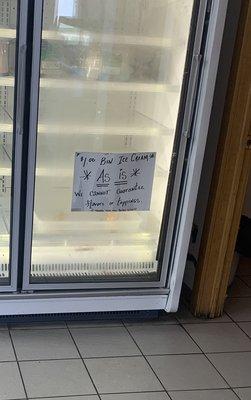 $1.00 Bin Ice Cream
* As is *
We cannot guarantee
flavors or happiness.